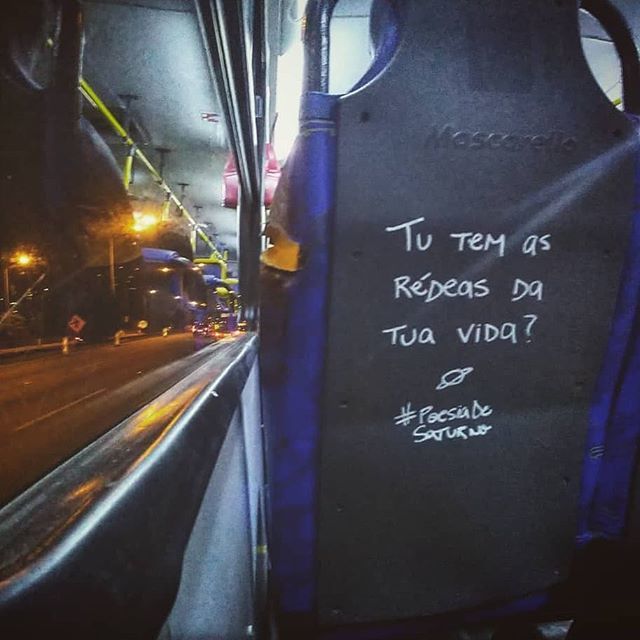 Mascarello
TU TEM AS
RÉDEAS DA
TUA VIDA?
#POESIADE
SATURNO